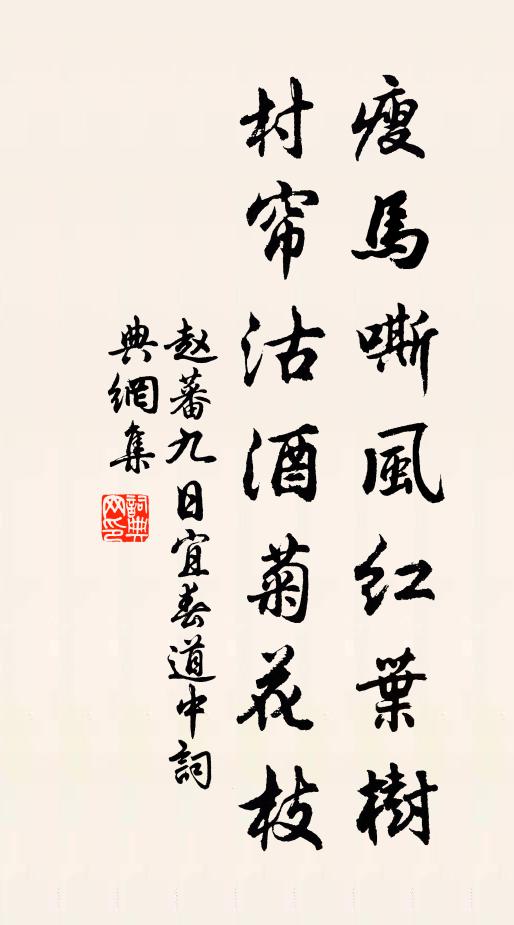 瘦馬嘶風红葉樹
村帘沽酒菊花枝
赵蕃九日宜春道中詞
典網集
詞典網印